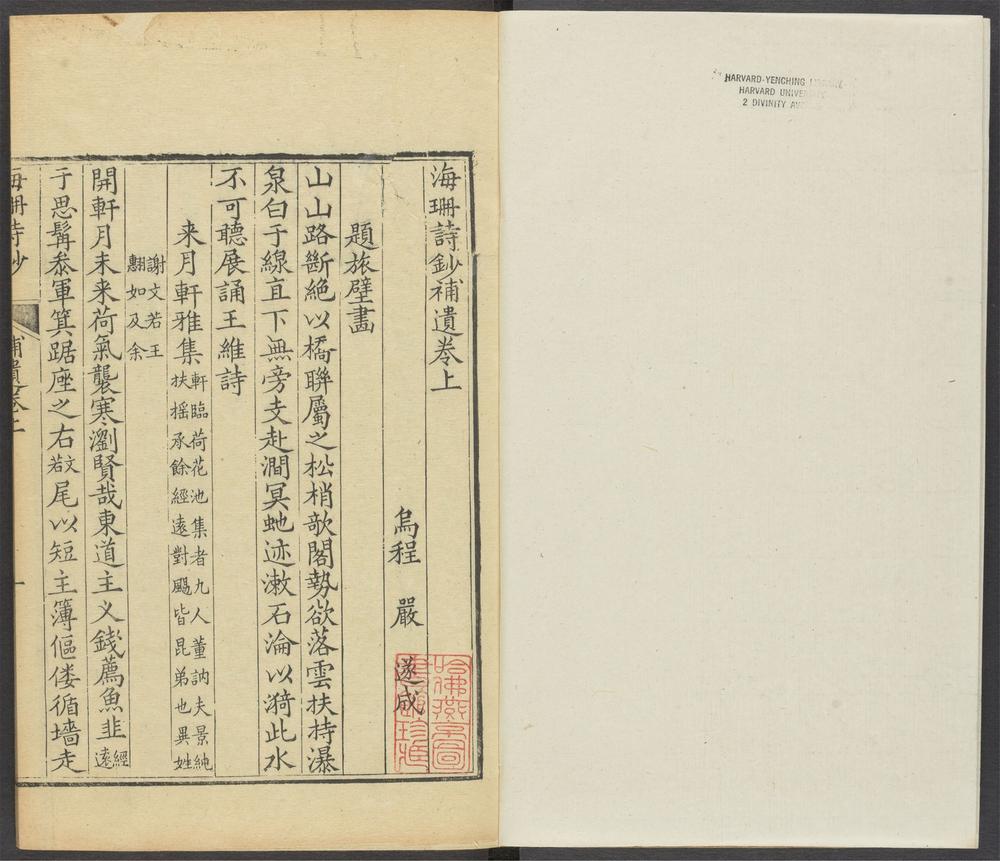 HARVARD-YENCHING
HARVARD
2 DIVINITY
海珊詩鈔補遺卷上
烏程　嚴　遂成
題旅壁畵
山山路斷絶以橋聨屬之松梢歌閣勢欲落雲扶持瀑
泉白于線直下無旁支赴澗冥虵迹漱石淪以漪此水
不可聽展誦王維詩
来月軒雅集軒臨荷花池集者九人董訥夫景純
扶揺承餘經遠對颺皆昆弟也異姓
謝文若王
翽如及余
開軒月未来荷氣襲寒瀏賢哉東道主义錢薦魚韭經
遠
于思髯叅軍箕踞座之右文
若尾以短主簿傴僂循墻走
海珊詩鈔
補遺卷上
一